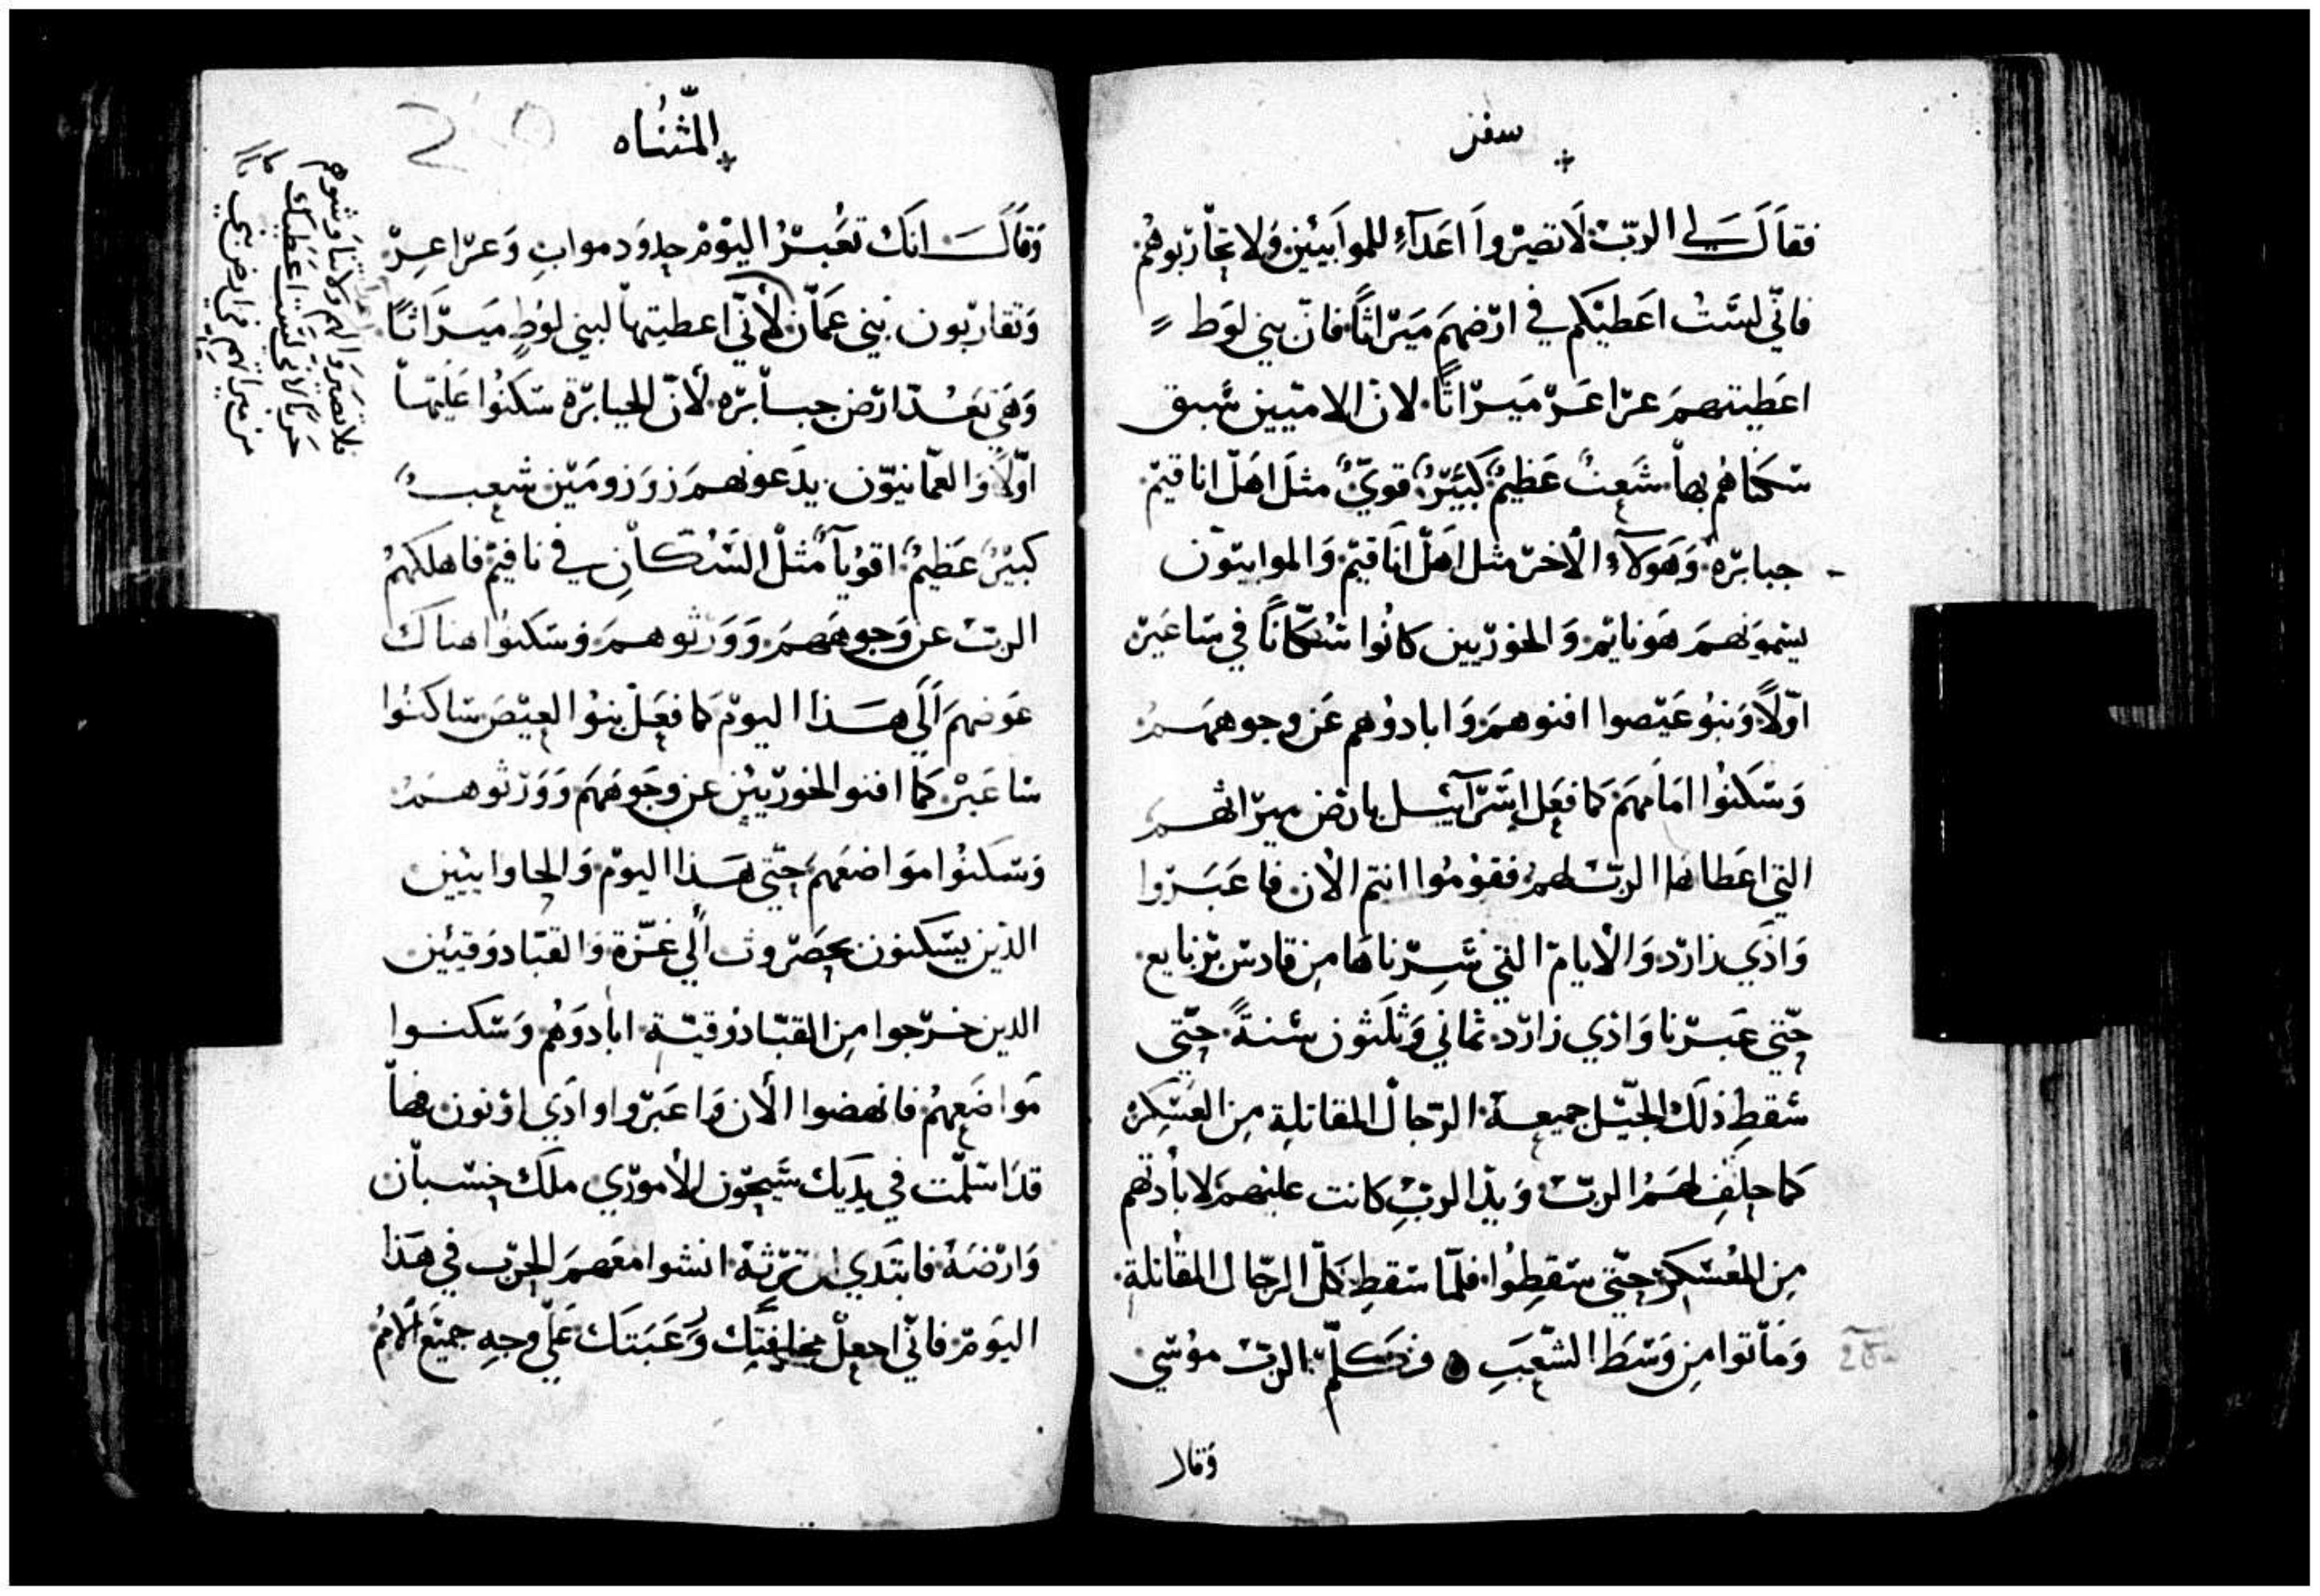 سفر
فقال لي الربّ لا تصيروا اعدآء للموابيين ولا تحاربوهم
فانّي لست اعطيكم في ارضهم ميراثاً فانّ بني لوط
اعطيتهم عرا عر ميراثاً لان الاميين سبق
سكناهم بها شعبٌ عظيمٌ كبيرٌ قويٌّ مثل اهل اناقيم
جبابره وهولآء الاخر مثل اهل اناقيم والموابيّون
يسمونهم هونايم والخوريين كانوا سُكّاناً في ساعير
اوّلاً وبنو عيصوا افنوهم وابادوهم عن وجوههم
وسكنوا امامهم كما فعل اسرآئيل بارض ميراثهم
التي اعطاها الربّ لهم فقوموا انتم الان فاعبروا
واذي زارد والايام التي سرناها من قادس برنايع
حتّي عبرنا واذي زارد ثماني وثلثون سنةً حتّي
سقط ذلك الجيل جميعة الرجال المقاتلة من العسكر
كما حلف لهم الربّ ويد الربّ كانت عليهم لابادتهم
من العسكر حتّي سقطوا فلمّا سقط كلّ الرجال المقاتلة
وماتوا من وسط الشعب فكلّم الربّ موسي
وقال
المثناه
وقال انك تعبر اليوم حدود مواب وعرا عر
وتقاربون بني عمّان لأنّي اعطيتها لبني لوط ميراثاً
وهي تعد ارض جبابره لأنّ الجبابرة سكنوا عليها
اوّلاً والعمّانيّون يدعونهم زوزومين شعب
كبيرٌ عظيمٌ اقويآء مثل السُكّان في ناقيم فاهلكهم
الربّ عن وجوههم وورثوهم وسكنوا هناك
عوضهم الي هذا اليوم كما فعل بنوا العيص ساكنوا
ساعير كما افنوا الخوريين عن وجوههم وورثوهم
وسكنوا مواضعهم حتّي هذا اليوم والحاوايين
الذين يسكنون بحصروت الي غزّة والقبّادوقيين
الدين خرجوا من القبّادوقيّة ابادوهم وسكنوا
مواضعهم فانهضوا الأن واعبروا واذي ارنون فها
قد اسلمت في يديك سيحون الأموري ملك حسبان
وارضه فابتدي ترثه انشوا معهم الحرب في هذا
اليوم فانّي اجعل مخافتك ورعبتك علي وجه جميع الأمم
فلا تصيروا لهم ولا تناوشوهم
حرباً لاني لست اعطيك
من ميراثهم من ارض بني